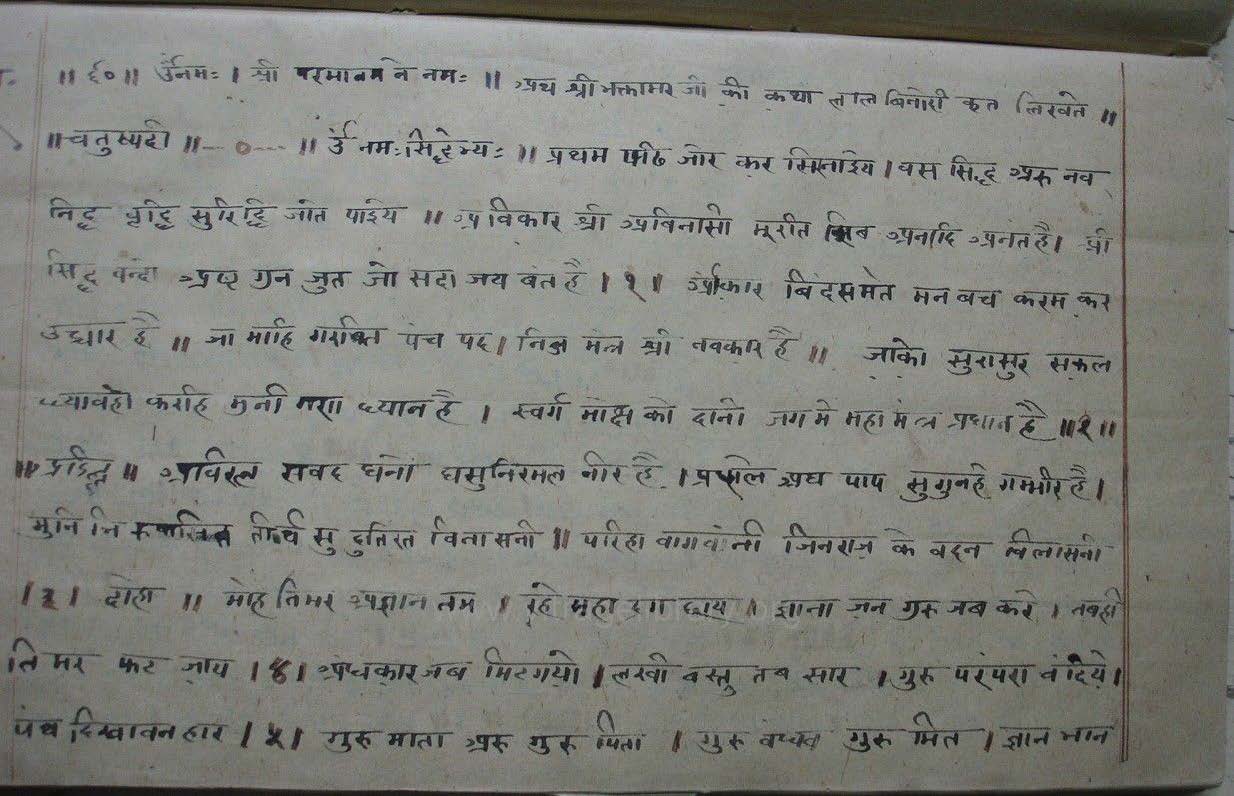 ॥ ६० ॥ ॐनमः । श्री परमातमने नमः ॥ अथ श्री भक्तामर जी की कथा लाल बिनोदी कृत लिख्यते ॥
॥ चतुष्पदी ॥ --०--- ॥ ॐ नमःसिद्धेभ्यः ॥ प्रथम जोर कर । वस सिद्ध अरु नव
निद्ध वृद्धि सुरिद्धि जांत पाइये ॥ अविकार श्री अविनासी मूरति सिव अनादि अनंत है। श्री
सिद्ध वन्दो अष्ट गुन जुत जो सदा जय वंत है । १ । ओंकार बिंदसमेत मन बच करम कर
उद्धार है ॥ जा माहि गरभित पंच पद । निज मंत्र श्री नवकार है ॥ जाको सुरासुर सकल
ध्यावही करहि मुनी ध्यान है । स्वर्ग मोक्ष को दानी जग मे महा मंत्र प्रधान है ॥ २ ॥
॥ अडिल्ल ॥ अविरल सवद घनो घसु निरमल नीर है । प्रक्षाले अघ पाप सुगुनहे गम्भीर है ।
मुनि तीर्थ सु दुरित विनासनी ॥ परिहा वागवांनी जिनराज के वदन विलासनी
। ३ । दोहा ॥ मोह तिमर अज्ञान तम । रहे महा द्रग छाय । ज्ञाना जन गुरु जब करे । तबही
तिमर फट जाय । ४ । अंधकार जब मिटगयो । लखी वस्तु तब सार । गुरु परंपरा वंदिये ।
पंथ दिखावन हार । ५ । गुरु माता अरु गुरु पिता । गुरु बंधव गुरु मित । ज्ञान भान